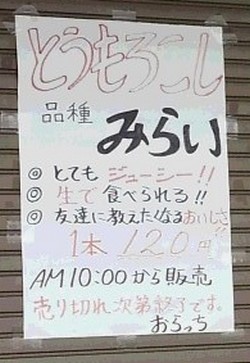 とうもろこし
品種 みらい
◎ とても ジューシー!!
◎ 生で食べられる!!
◎ 友達に教えたくなるおいしさ!!
1本 120円
AM10:00から販売
売り切れ次第終了です。
おらっち